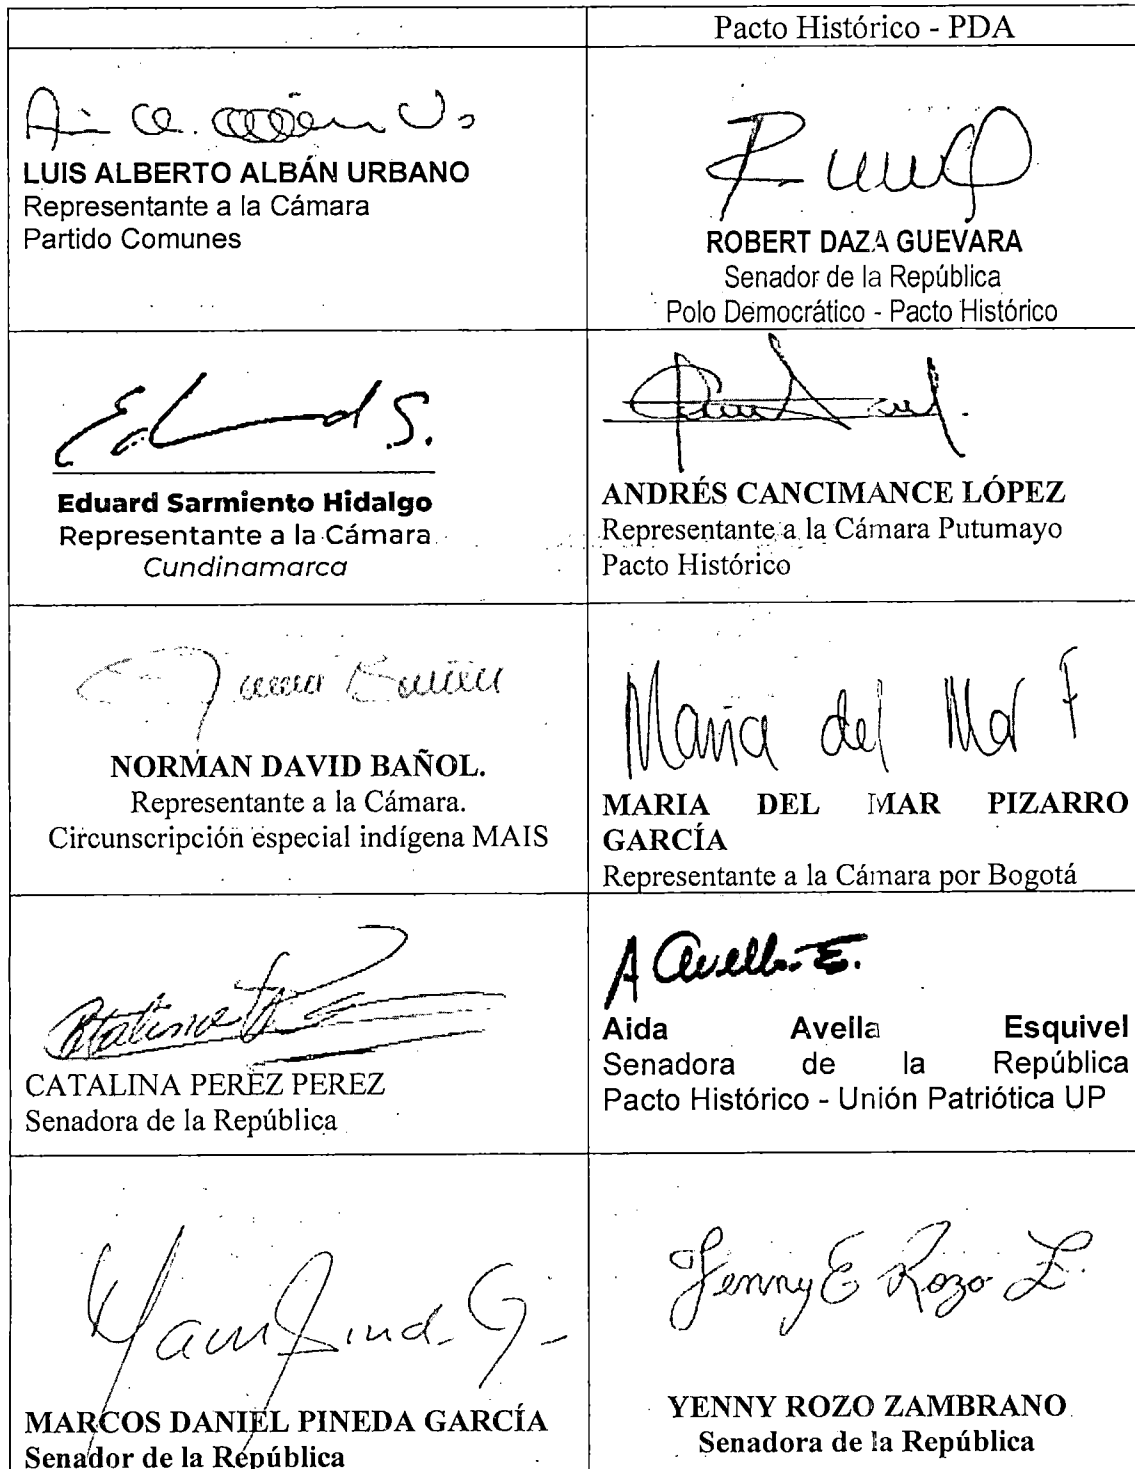 Pacto Histórico - PDA
LUIS ALBERTO ALBÁN URBANO
Representante a la Cámara
Partido Comunes
ROBERT DAZA GUEVARA
Senador de la República
Polo Democrático - Pacto Histórico
Eduard S.
Eduard Sarmiento Hidalgo
Representante a la Cámara
Cundinamarca
ANDRÉS CANCIMANCE LÓPEZ
Representante a la Cámara Putumayo
Pacto Histórico
NORMAN DAVID BAÑOL.
Representante a la Cámara.
Circunscripción especial indígena MAIS
Maria del Mar P
MARIA DEL MAR PIZARRO
GARCÍA
Representante a la Cámara por Bogotá
Catalina
CATALINA PEREZ PEREZ
Senadora de la República
A Avella E.
Aida Avella Esquivel
Senadora de la República
Pacto Histórico - Unión Patriótica UP
MARCOS DANIEL PINEDA GARCÍA
Senador de la República
Yenny E Rozo Z.
YENNY ROZO ZAMBRANO
Senadora de la República